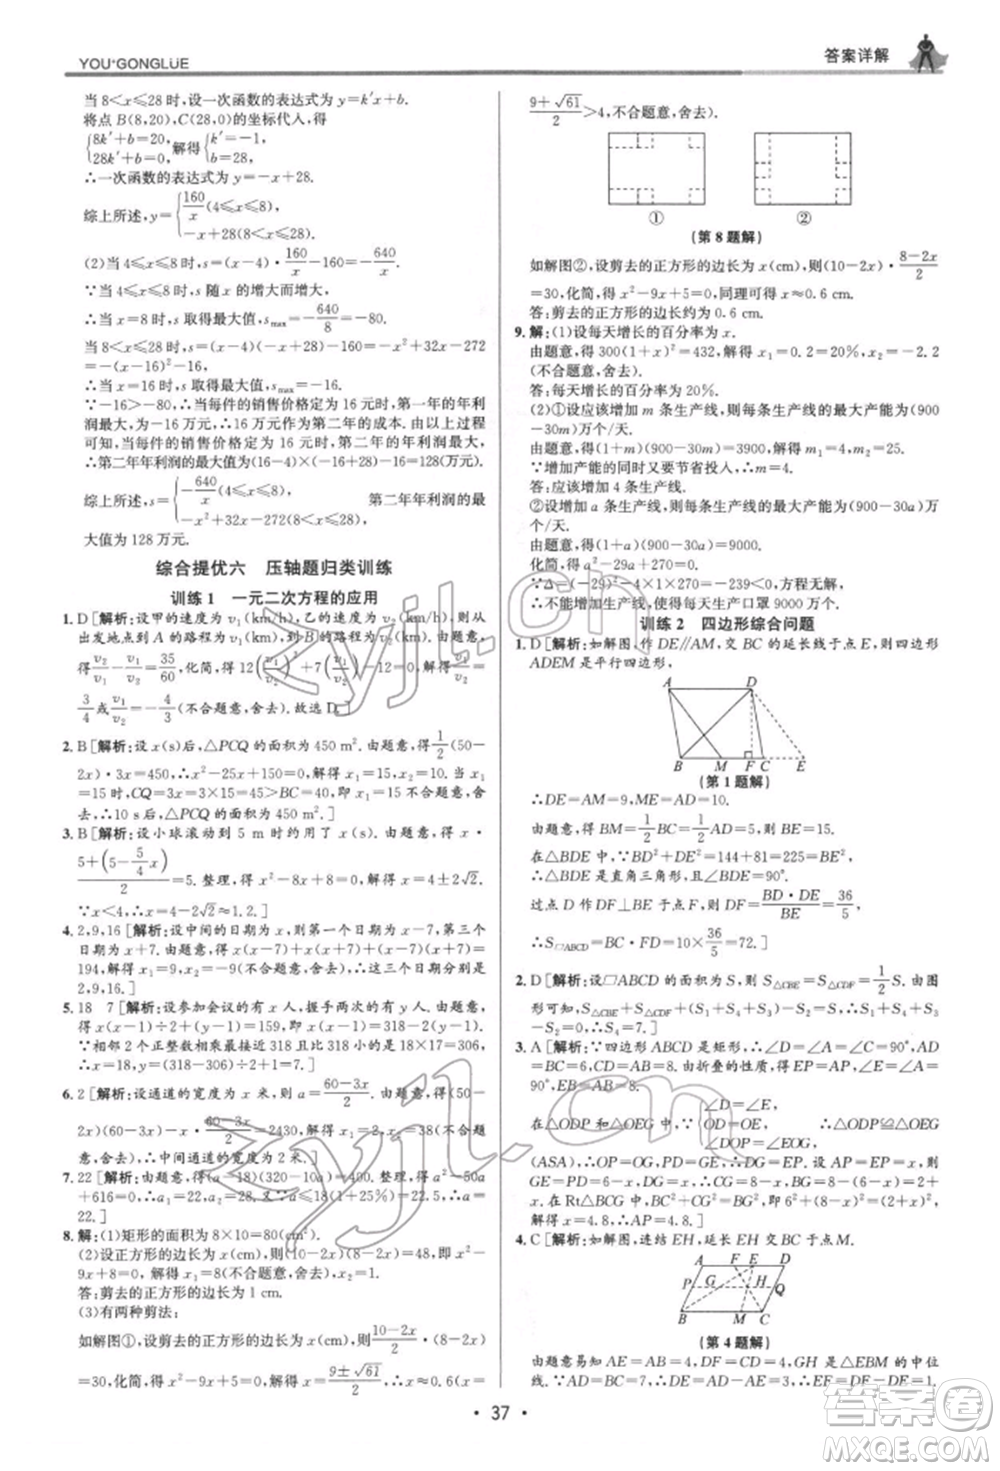 YOU+GONGLUE
答案详解
当 8<x≤28 时,设一次函数的表达式为 y=k′x+b.
将点 B(8,20),C(28,0)的坐标代入,得
{8k′+b=20, 28k′+b=0, 解得{k′=-1, b=28,
∴一次函数的表达式为 y=-x+28.
综上所述,y={160/x(4≤x≤8), -x+28(8<x≤28).
(2)当 4≤x≤8 时,s=(x-4)·160/x-160=-640/x.
∵当 4≤x≤8 时,s 随 x 的增大而增大,
∴当 x=8 时,s 取得最大值,smax=-640/8=-80.
当 8<x≤28 时,s=(x-4)(-x+28)-160=-x²+32x-272
=-(x-16)²-16,
∴当 x=16 时,s 取得最大值,smax=-16.
∵-16>-80,∴当每件的销售价格定为 16 元时,第一年的年利
润最大,为-16 万元.∴16 万元作为第二年的成本.由以上过程
可知,第二年当每件的销售价格定为 16 元时,年利润最大.
∴第二年年利润的最大值为(16-4)×(28-16)-16=128(万元).
综上所述,s={-640/x(4≤x≤8), -x²+32x-272(8<x≤28). 第二年年利润的最
大值为 128 万元.
综合提优六 压轴题归类训练
训练 1 一元二次方程的应用
1. D [解析:设甲的速度为 v₁(km/h),乙的速度为 v₂(km/h),
出发地点到 A 的路程为 v₁(km),到 B 的路程为 v₂(km).由题意,
得 v₂/v₁-v₁/v₂=35/60,化简,得 12(v₁/v₂)²+7(v₁/v₂)-12=0,解得 v₁/v₂=
3/4或v₁/v₂=-4/3(不合题意,舍去).故选 D.]
2. B [解析:设 x(s)后,△PCQ 的面积为 450 m².由题意,得1/2(50-
2x)·3x=450,∴x²-25x+150=0,解得 x₁=15,x₂=10.当 x=
15 时,CQ=3x=3×15=45>BC=40,∴x₁=15(不合题意,舍
去),∴10 s 后,△PCQ 的面积为 450 m².]
3. B [解析:设小球滚动到 5 m 时约用了 x(s).由题意,得 x·
5+(5-5/4x)/2=5.整理,得 x²-8x+8=0,解得 x=4±2√2.
∵x<4,∴x=4-2√2≈1.2.]
4. 2,9,16 [解析:设中间的日期为 x,则第一个日期为 x-7,第三个
日期为 x+7.由题意,得 x(x-7)+x(x+7)+(x-7)(x+7)=
194,解得 x₁=9,x₂=-9(不合题意,舍去).∴三个日期分别为
2,9,16.]
5. 18 7 [解析:设参加会议的有 x 人,握手两次的有 y 人.由题意,
得 x(x-1)÷2+(y-1)=159,∴x(x-1)=318-2(y-1).
∵相邻 2 个正整数相乘最接近 318 的是 18×17=306,
∴x=18,y=(318-306)÷2+1=7.]
6. 2 [解析:设通道的宽度为 x 米,则 a=(60-3x)/2(米).由题意,得
(50-2x)(60-3x)-x·(60-3x)/2=2430,解得 x₁=2,x₂=38(不合题意,
舍去),∴中间通道的宽度为 2 米.]
7. 22 [解析:由题意,得(a-18)(320-10a)=400.整理,得 a²-50a
+616=0,解得 a₁=22,a₂=28.∵a≤18(1+25%),∴a=
22.]
8. 解:(1)矩形的面积为 8×10=80(cm²).
(2)设正方形的边长为 x(cm).由题意,得 80-4x²=80×95%,解得
x₁=1,x₂=-1(不合题意,舍去).
答:剪去的正方形的边长为 1 cm.
(3)有两种剪法:
如解图①,设剪去的正方形的边长为 x(cm),则(10-2x)/2·(8-2x)
=30,化简,得 x²-9x+5=0,解得 x=(9±√61)/2,∴x≈0.6(x=
(9+√61)/2>4,不合题意,舍去).
① ②
(第 8 题解)
如解图②,设剪去的正方形的边长为 x(cm),则(10-2x)·(8-2x)/2
=30,化简,得 x²-9x+5=0,同理可得 x≈0.6 cm.
答:剪去的正方形的边长约为 0.6 cm.
9. 解:(1)设每天增长的百分率为 x.
由题意,得 300(1+x)²=432,解得 x₁=0.2=20%,x₂=-2.2
(不合题意,舍去).
答:每天增长的百分率为 20%.
(2)①设应该增加 m 条生产线,则每条生产线的最大产能为(900
-30m)万个/天.
由题意,得(1+m)(900-30m)=3900,解得 m₁=4,m₂=25.
∵增加产能的同时又要节省投入,∴m=4.
答:应该增加 4 条生产线.
②设增加 a 条生产线,则每条生产线的最大产能为(900-30a)万
个/天.
由题意,得(1+a)(900-30a)=9000.
化简,得 a²-29a+270=0.
∵Δ=(-29)²-4×1×270=-239<0,∴方程无解.
∴不能增加生产线,使得每天生产口罩 9000 万个.
训练 2 四边形综合问题
1. D [解析:如解图,作 DE∥AM,交 BC 的延长线于点 E,则四边形
ADEM 是平行四边形,
A D B M F C E
(第 1 题解)
∴DE=AM=9,ME=AD=10.
由题意,得 BM=1/2BC=1/2AD=5,∴BE=15.
在△BDE 中,∵BD²+DE²=144+81=225=BE²,
∴△BDE 是直角三角形,且∠BDE=90°.
过点 D 作 DF⊥BE 于点 F,则 DF=BD·DE/BE=36/5,
∴S▱ABCD=BC·FD=10×36/5=72.]
2. D [解析:设▱ABCD 的面积为 S,则 S△CBE=S△CDF=1/2S.由图
形可知,S△CDF+S△CBE+(S₁+S₄+S₃)-S₂=S,∴S₁+S₄+S₃
-S₂=0,∴S₄=7.]
3. A [解析:∵四边形 ABCD 是矩形,∴∠D=∠A=∠C=90°,AD=
BC=6,CD=AB=8.由折叠的性质,得 EP=AP,∠E=∠A=90°,
BE=AB=8.在△ODP 和△OEG 中,∵{∠D=∠E, OD=OE, ∠DOP=∠EOG, ∴△ODP≌△OEG
(ASA),∴OP=OG,PD=GE,∴DG=EP.设 AP=EP=x,则 PD=
GE=6-x,DG=x,∴CG=8-x,BG=8-(6-x)=2+x.
在 Rt△BCG 中,BC²+CG²=BG²,即 6²+(8-x)²=(x+2)²,
解得 x=4.8,∴AP=4.8.]
4. C [解析:如解图,连结 EH,延长 EH 交 BC 于点 M.
A F E D P G H Q B M C
(第 4 题解)
由题意易知 AE=4,DF=4,EF=2,GH 是△EBM 的中位
线.
· 37 ·